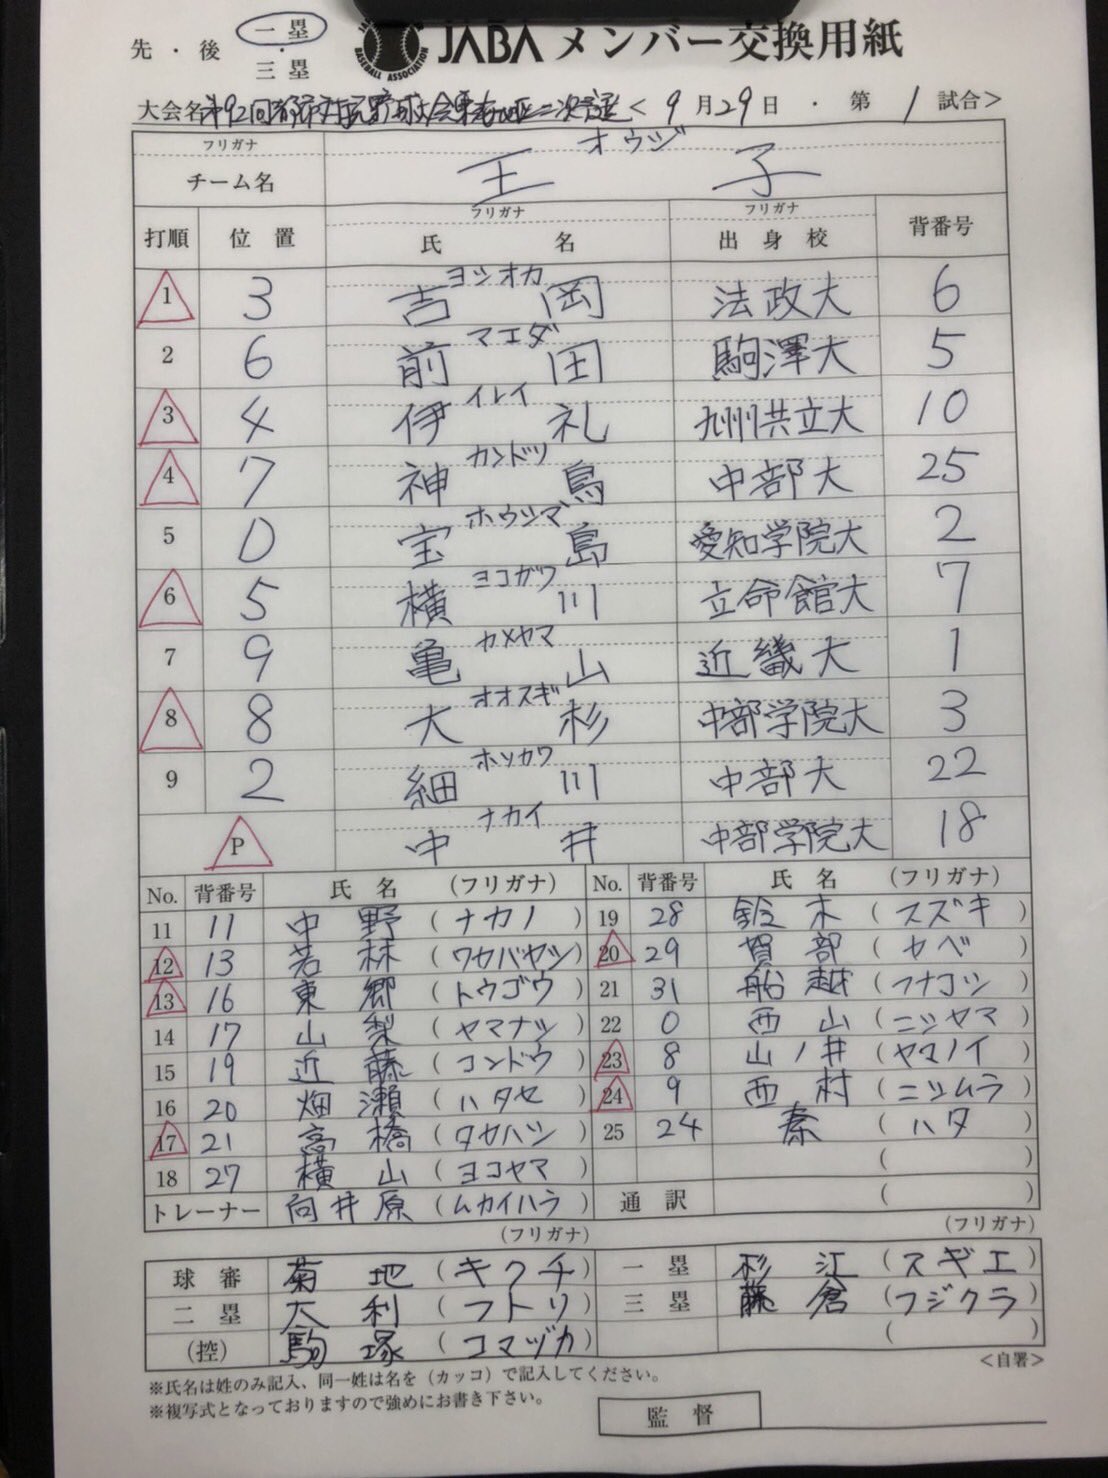 先・後 一塁・三塁 JABA メンバー交換用紙
BASEBALL ASSOCIATION
大会名 第92回都市対抗野球大会東海地区二次予選 < 9月29日・第1試合>
フリガナ オウジ
チーム名 王子
打順 位置 フリガナ 氏名 フリガナ 出身校 背番号
1 3 ヨシオカ 吉岡 法政大 6
2 6 マエダ 前田 駒澤大 5
3 4 イレイ 伊礼 九州共立大 10
4 7 カンドリ 神鳥 中部大 25
5 D ホウシマ 宝島 愛知学院大 2
6 5 ヨコガワ 横川 立命館大 7
7 9 カメヤマ 亀山 近畿大 1
8 8 オオスギ 大杉 中部学院大 3
9 2 ホソカワ 細川 中部大 22
P ナカイ 中井 中部学院大 18
No. 背番号 氏名 (フリガナ) No. 背番号 氏名 (フリガナ)
11 11 中野 (ナカノ) 19 28 鈴木 (スズキ)
12 13 若林 (ワカバヤシ) 20 29 賀部 (カベ)
13 16 東郷 (トウゴウ) 21 31 船越 (フナコシ)
14 17 山梨 (ヤマナシ) 22 0 西山 (ニシヤマ)
15 19 近藤 (コンドウ) 23 8 山ノ井 (ヤマノイ)
16 20 畑瀬 (ハタセ) 24 9 西村 (ニシムラ)
17 21 高橋 (タカハシ) 25 24 秦 (ハタ)
18 27 横山 (ヨコヤマ) ( )
トレーナー 向井原 (ムカイハラ) 通訳 ( )
(フリガナ) (フリガナ)
球審 菊地 (キクチ) 一塁 杉江 (スギエ)
二塁 太利 (フトリ) 三塁 藤倉 (フジクラ)
(控) 駒塚 (コマヅカ) ( )
※氏名は姓のみ記入、同一姓は名を(カッコ)で記入してください。 <自署>
※複写式となっておりますので強めにお書き下さい。
監督